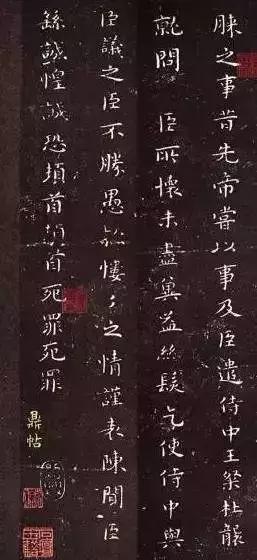 昧之事昔先帝嘗以事及臣遣侍中王粲杜襲
就問　臣所懷未盡奚益絲髮乞使侍中與
臣議之臣不勝愚款慺々之情謹表陳聞臣
繇誠惶誠恐頓首頓首死罪死罪
鼎帖